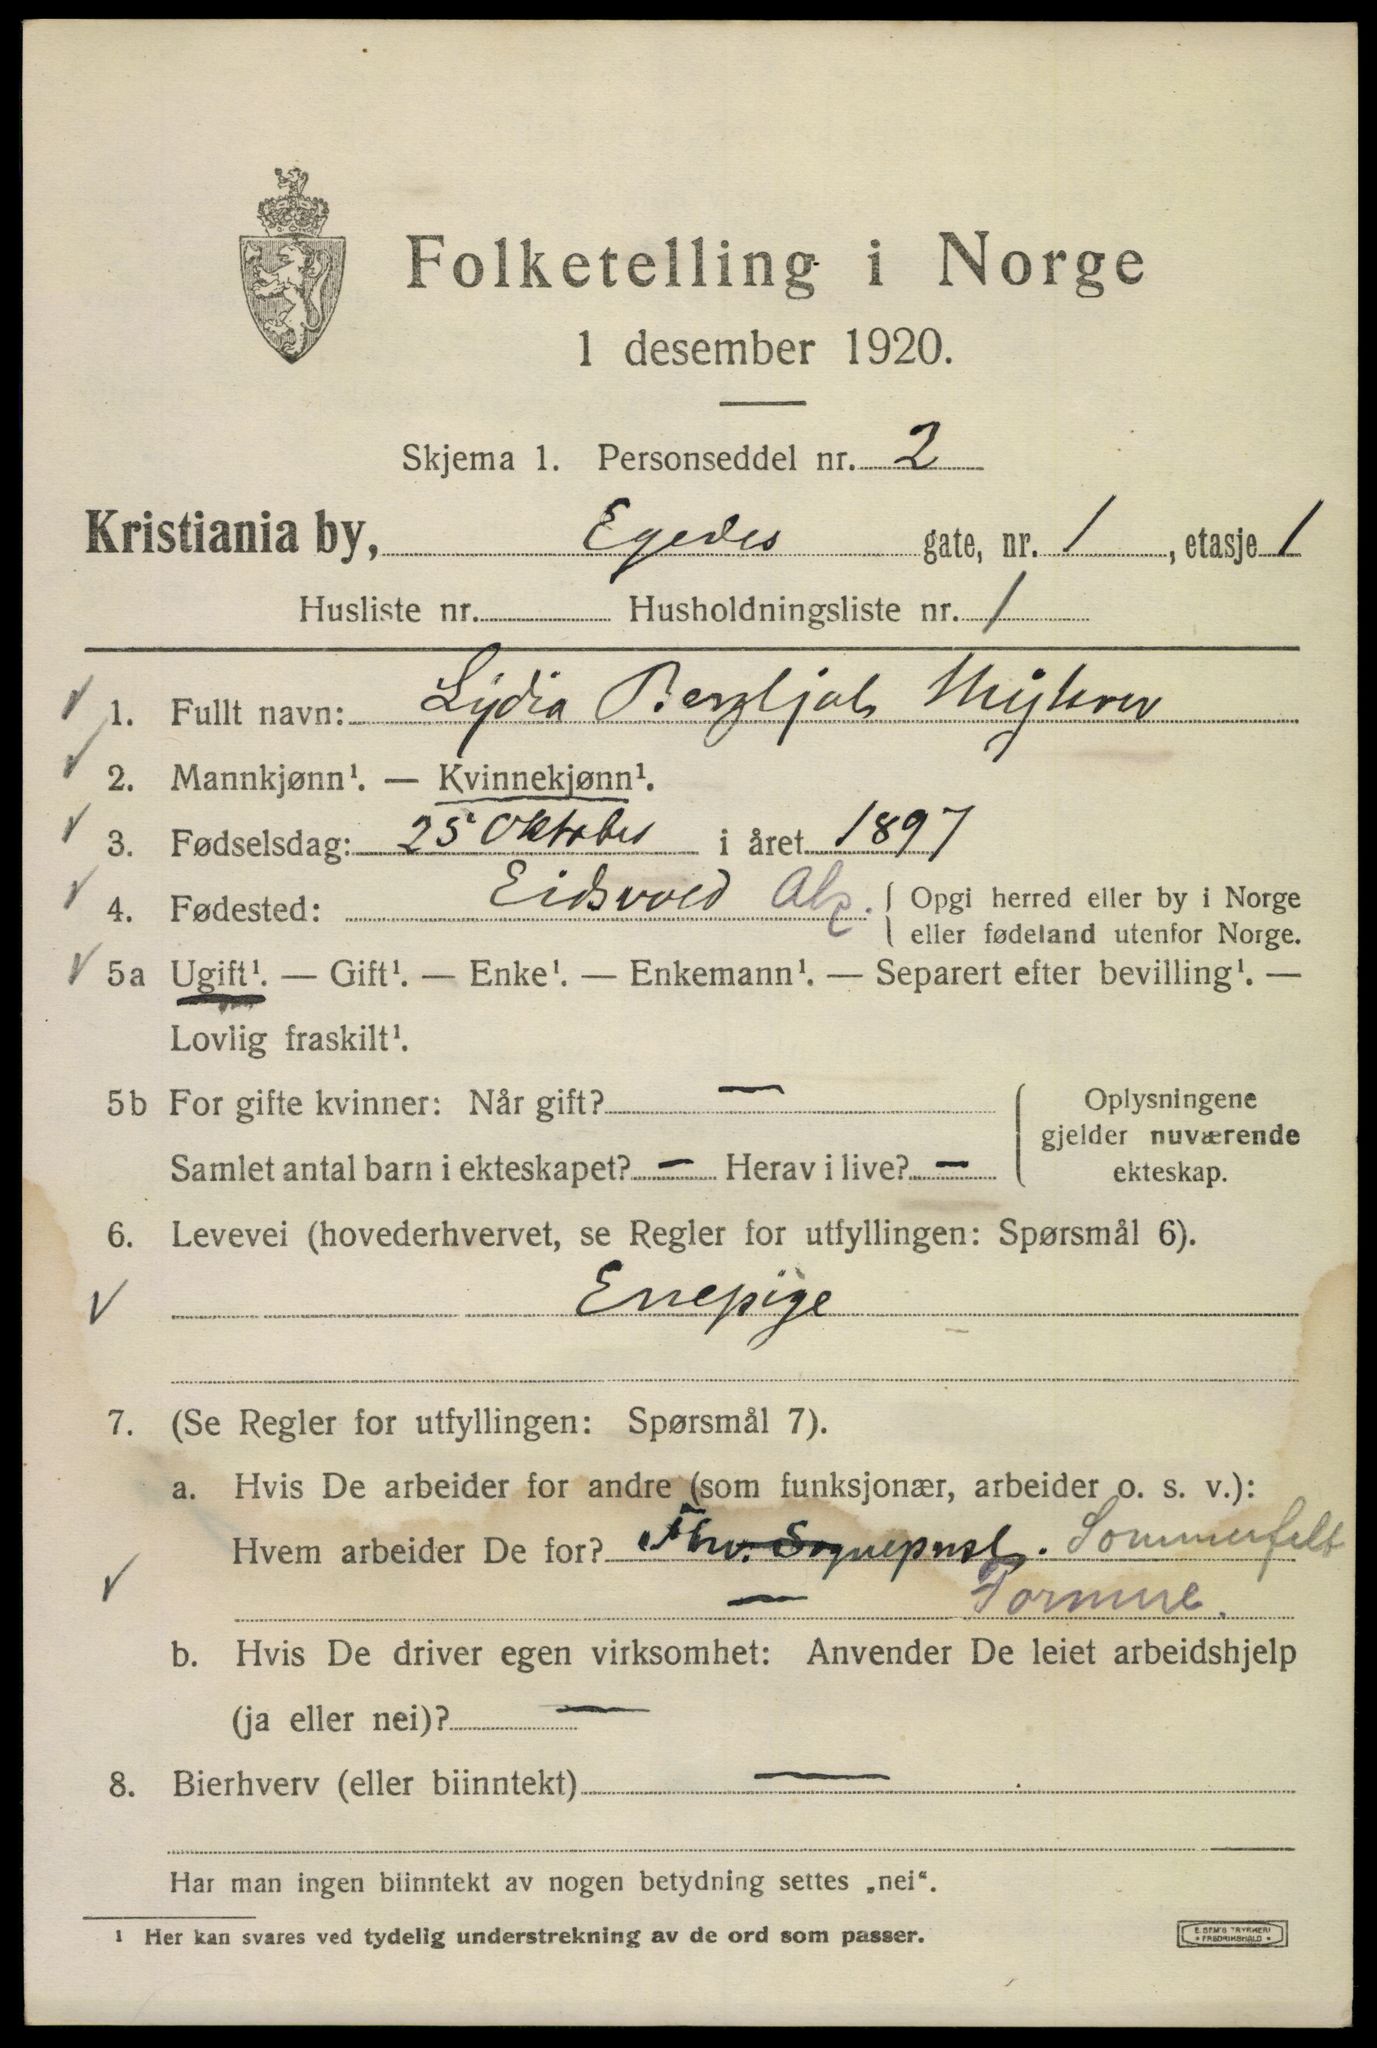 Folketelling i Norge
1 desember 1920.
Skjema 1. Personseddel nr. 2
Kristiania by, Egedes gate, nr. 1, etasje 1
Husliste nr. Husholdningsliste nr. 1
1. Fullt navn: Lydia
2. Mannkjønn¹. — Kvinnekjønn¹.
3. Fødselsdag: 25 Oktober i året 1897
4. Fødested: Eidsvold Ak. { Opgi herred eller by i Norge
eller fødeland utenfor Norge.
5a Ugift¹. — Gift¹. — Enke¹. — Enkemann¹. — Separert efter bevilling¹. —
Lovlig fraskilt¹.
5b For gifte kvinner: Når gift? —
Samlet antal barn i ekteskapet? — Herav i live? —
Oplysningene
gjelder nuværende
ekteskap.
6. Levevei (hovederhvervet, se Regler for utfyllingen: Spørsmål 6).
Enepige
7. (Se Regler for utfyllingen: Spørsmål 7).
a. Hvis De arbeider for andre (som funksjonær, arbeider o. s. v.):
Hvem arbeider De for? Sogneprest. Sommerfelt
—
b. Hvis De driver egen virksomhet: Anvender De leiet arbeidshjelp
(ja eller nei)? —
8. Bierhverv (eller biinntekt) —
Har man ingen biinntekt av nogen betydning settes „nei“.
¹ Her kan svares ved tydelig understrekning av de ord som passer.
E SEM'S TRYKKERI
* FREDRIKSHALD *